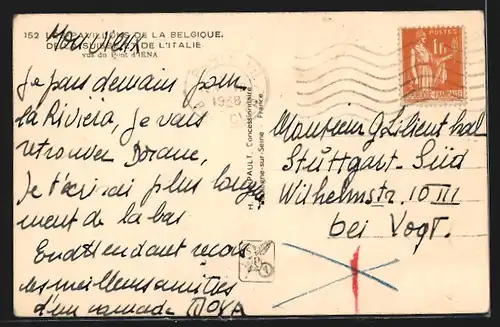 152 LES PAVILLONS DE LA BELGIQUE,
DE LA SUISSE ET DE L'ITALIE
vus du Pont d'IÉNA
Mon
Je pars demain pour
la Riviéra, je vais
retrouver
Je t'écrirai plus longue
ment de la bas
En attendant reçois
les meilleurs amitiés
d'un camarade
1938
H. PAULT, Concessionnaire
-sur-Seine - France.
1Fr
Monsieur G. Lilienthal
Stuttgart-Süd
Wilhelmstr. 10 III
bei Vogt.